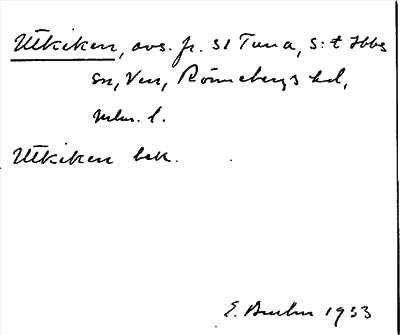 Utkiken, avs. fr. St Tuna, S:t Ibbs
sn, Ven, Rönnebergs hd,
Mlm. l.
Utkiken bek.
E. 1933